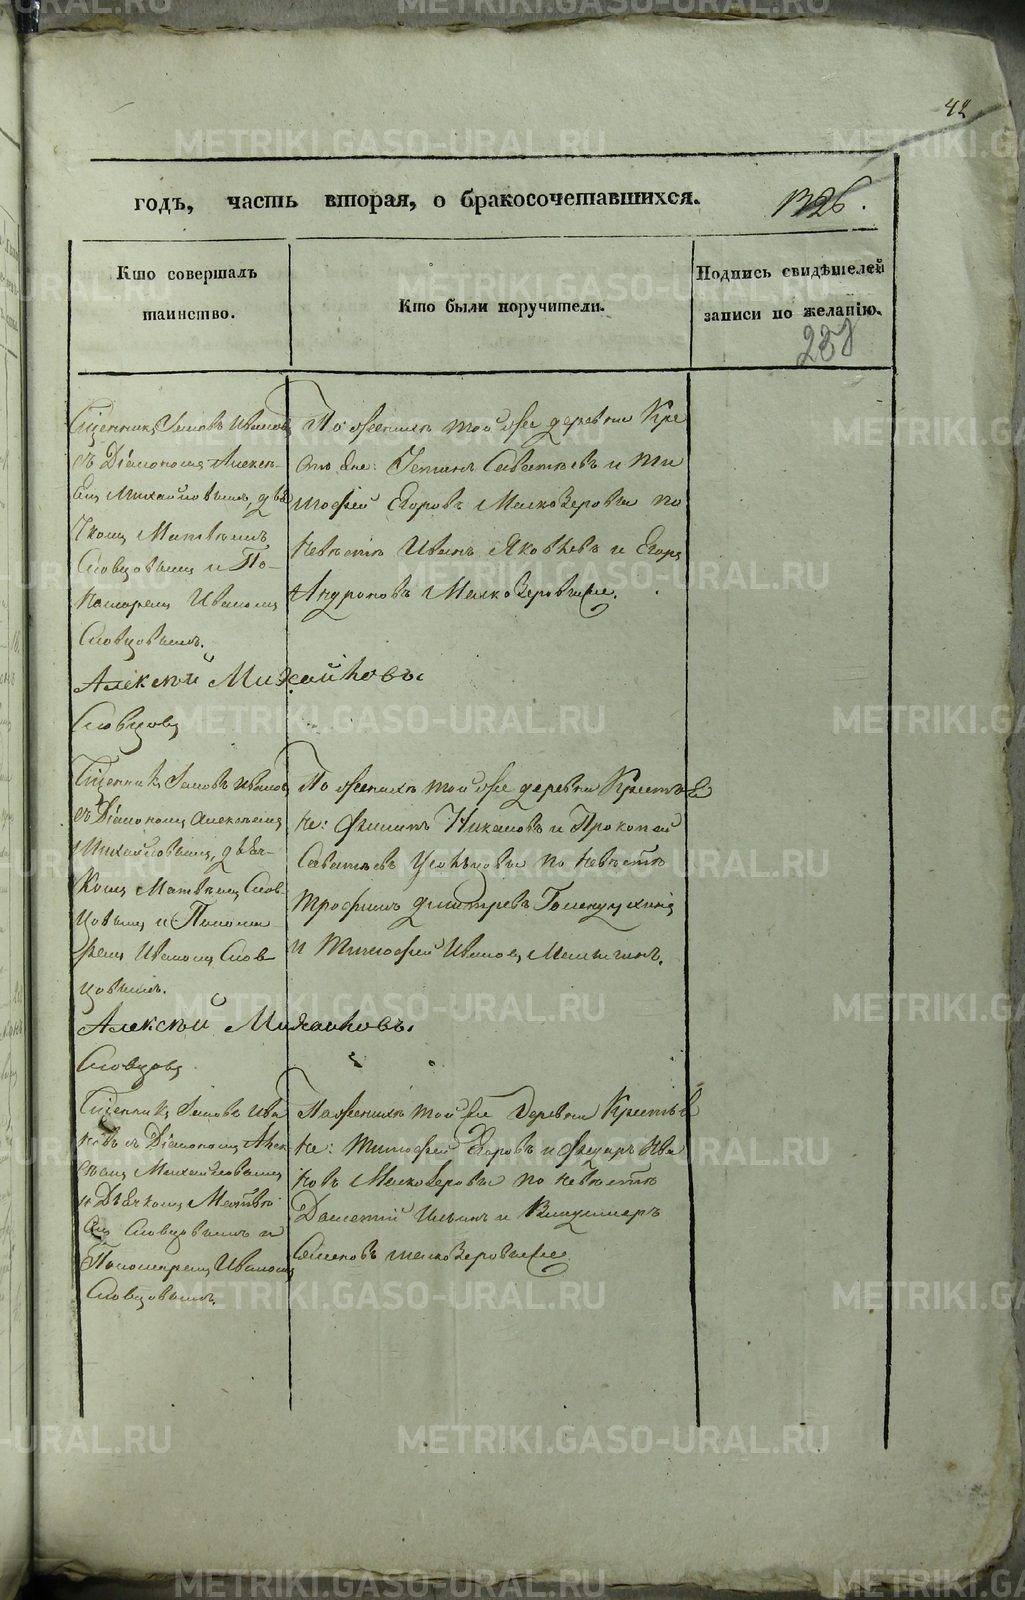 42
годъ, часть вторая, о бракосочетавшихся.
Кто совершалъ таинство.
Кто были поручители.
Подпись свидѣтелей записи по желанію.
Іаковъ Ивановъ
съ Діакономъ Алексѣ-
емъ Михайловымъ, дья
чкомъ Матвѣемъ
Словцовымъ и По-
намаремъ Иваномъ
Словцовымъ.
Алексѣй Михайловъ
Словцовъ
По женихѣ той же деревни Кре
стьяне: Савватѣевъ и Ти
мофей Егоровъ Малковеровы по
невѣстѣ Иванъ Яковлевъ и Егоръ
Андроновъ Малковеровы же.
Іаковъ Ивановъ
съ Діакономъ Алексѣемъ
Михайловымъ, дьяч-
комъ Матвѣемъ Слов-
цовымъ и Понома
ремъ Иваномъ Слов
цовымъ.
Алексѣй Михайловъ
Словцовъ
По женихѣ той же деревни Крестья
не: Филипъ и Прокопей
Савватѣевъ по невѣстѣ
Трофимъ Дмитревъ
и Тимофей Ивановъ
Іаковъ Ива
новъ съ Діакономъ Алек
сѣемъ Михайловымъ
и Дьячкомъ Матвѣе
мъ Словцовымъ и
Пономаремъ Иваномъ
Словцовымъ.
По женихѣ той же деревни Крестья
не: Тимофей Егоровъ и Федоръ Ива
новъ Малковеровы по невѣстѣ
Дометій Ильинъ и Владимиръ
Семеновъ Малковеровы же.
METRIKI.GASO-URAL.RU